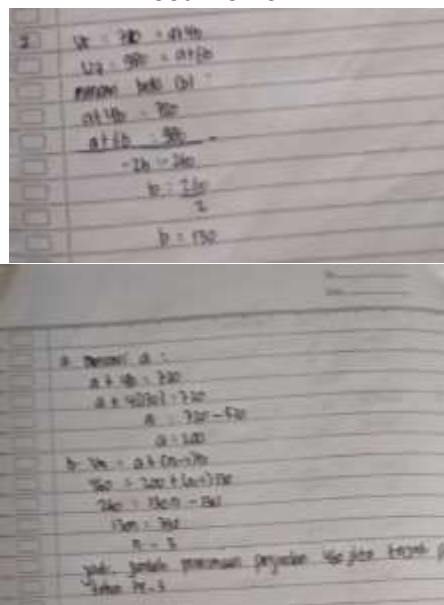 2 U5 = 720 = a+4b
U7 = 980 = a+6b
mencari beda (b)
a+4b = 720
a+6b = 980 -
-2b = -260
b = 260
2
b = 130
a. mencari a :
a + 4b = 720
a + 4(130) = 720
a = 720 - 520
a = 200
b. Un = a + (n-1)b
460 = 200 + (n-1)130
260 = 130n - 130
130n = 390
n = 3
jadi, jumlah penerimaan 460 juta terjadi
tahun ke-3